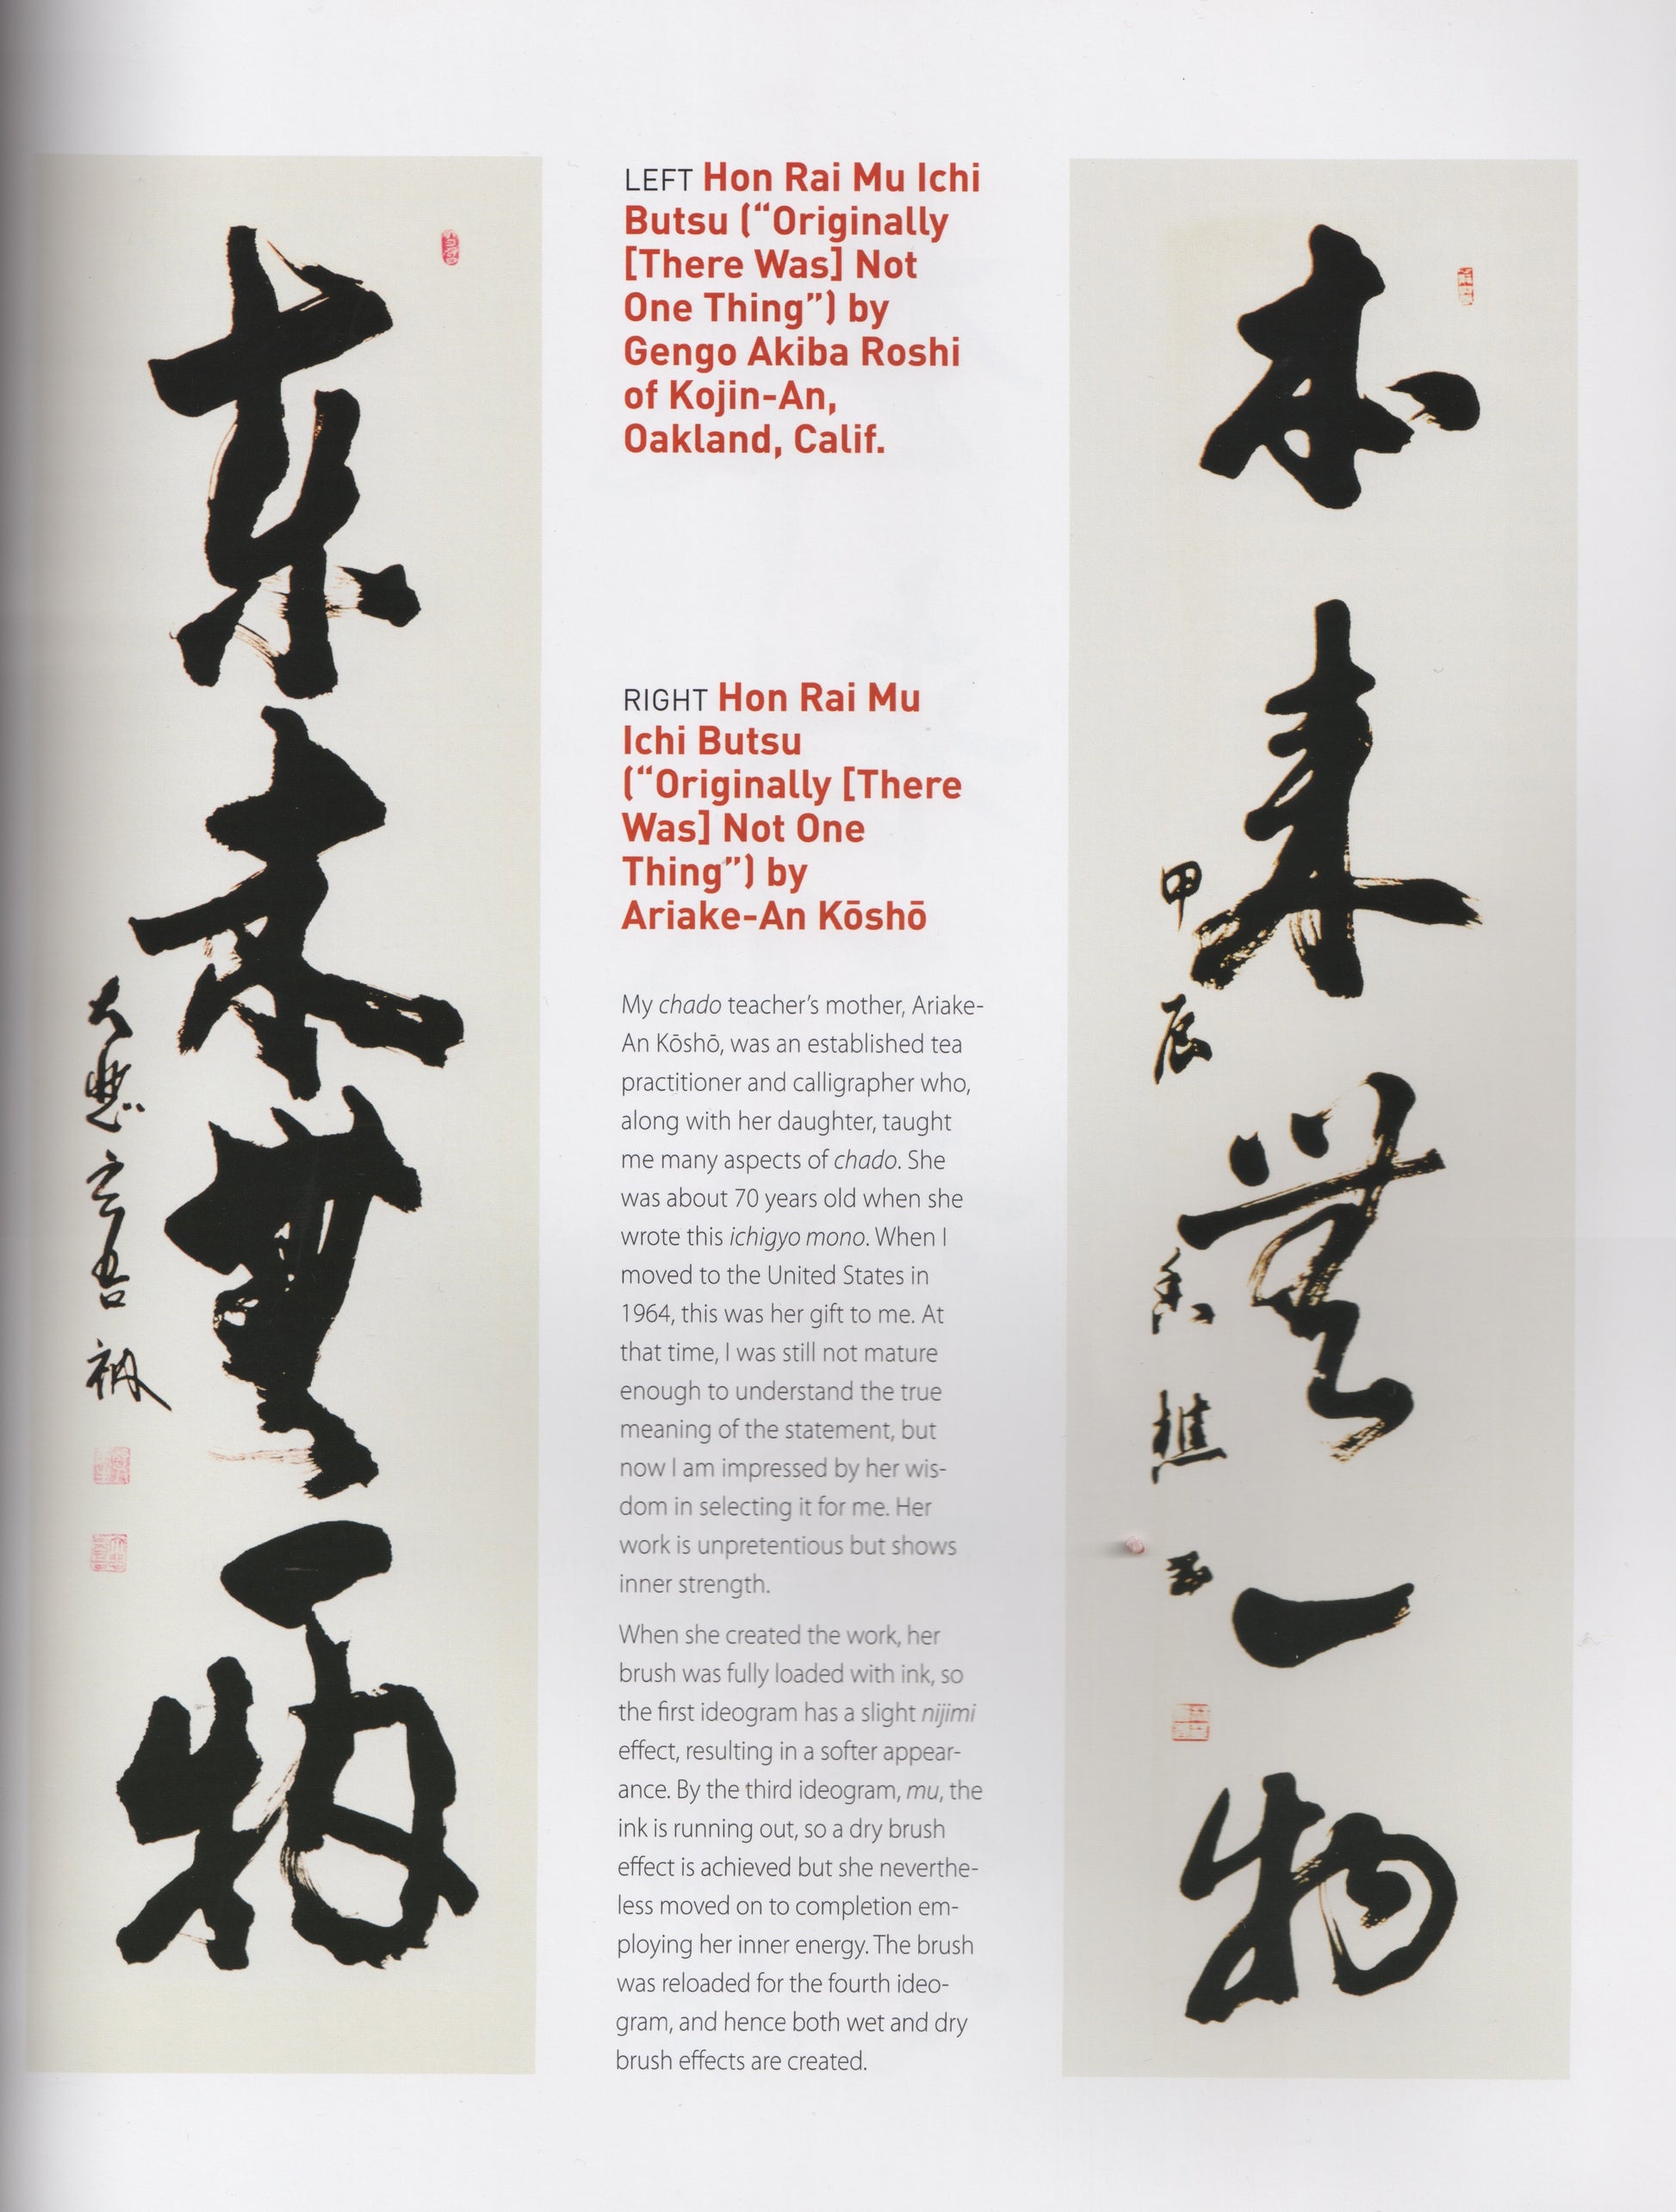 本
来
無
一
物
大悲玄吾衲
LEFT Hon Rai Mu Ichi
Butsu (“Originally
[There Was] Not
One Thing”) by
Gengo Akiba Roshi
of Kojin-An,
Oakland, Calif.
RIGHT Hon Rai Mu
Ichi Butsu
(“Originally [There
Was] Not One
Thing”) by
Ariake-An Kōshō
My chado teacher’s mother, Ariake-
An Kōshō, was an established tea
practitioner and calligrapher who,
along with her daughter, taught
me many aspects of chado. She
was about 70 years old when she
wrote this ichigyo mono. When I
moved to the United States in
1964, this was her gift to me. At
that time, I was still not mature
enough to understand the true
meaning of the statement, but
now I am impressed by her wis-
dom in selecting it for me. Her
work is unpretentious but shows
inner strength.
When she created the work, her
brush was fully loaded with ink, so
the first ideogram has a slight nijimi
effect, resulting in a softer appear-
ance. By the third ideogram, mu, the
ink is running out, so a dry brush
effect is achieved but she neverthe-
less moved on to completion em-
ploying her inner energy. The brush
was reloaded for the fourth ideo-
gram, and hence both wet and dry
brush effects are created.
本
来
無
一
物
甲辰
香樵